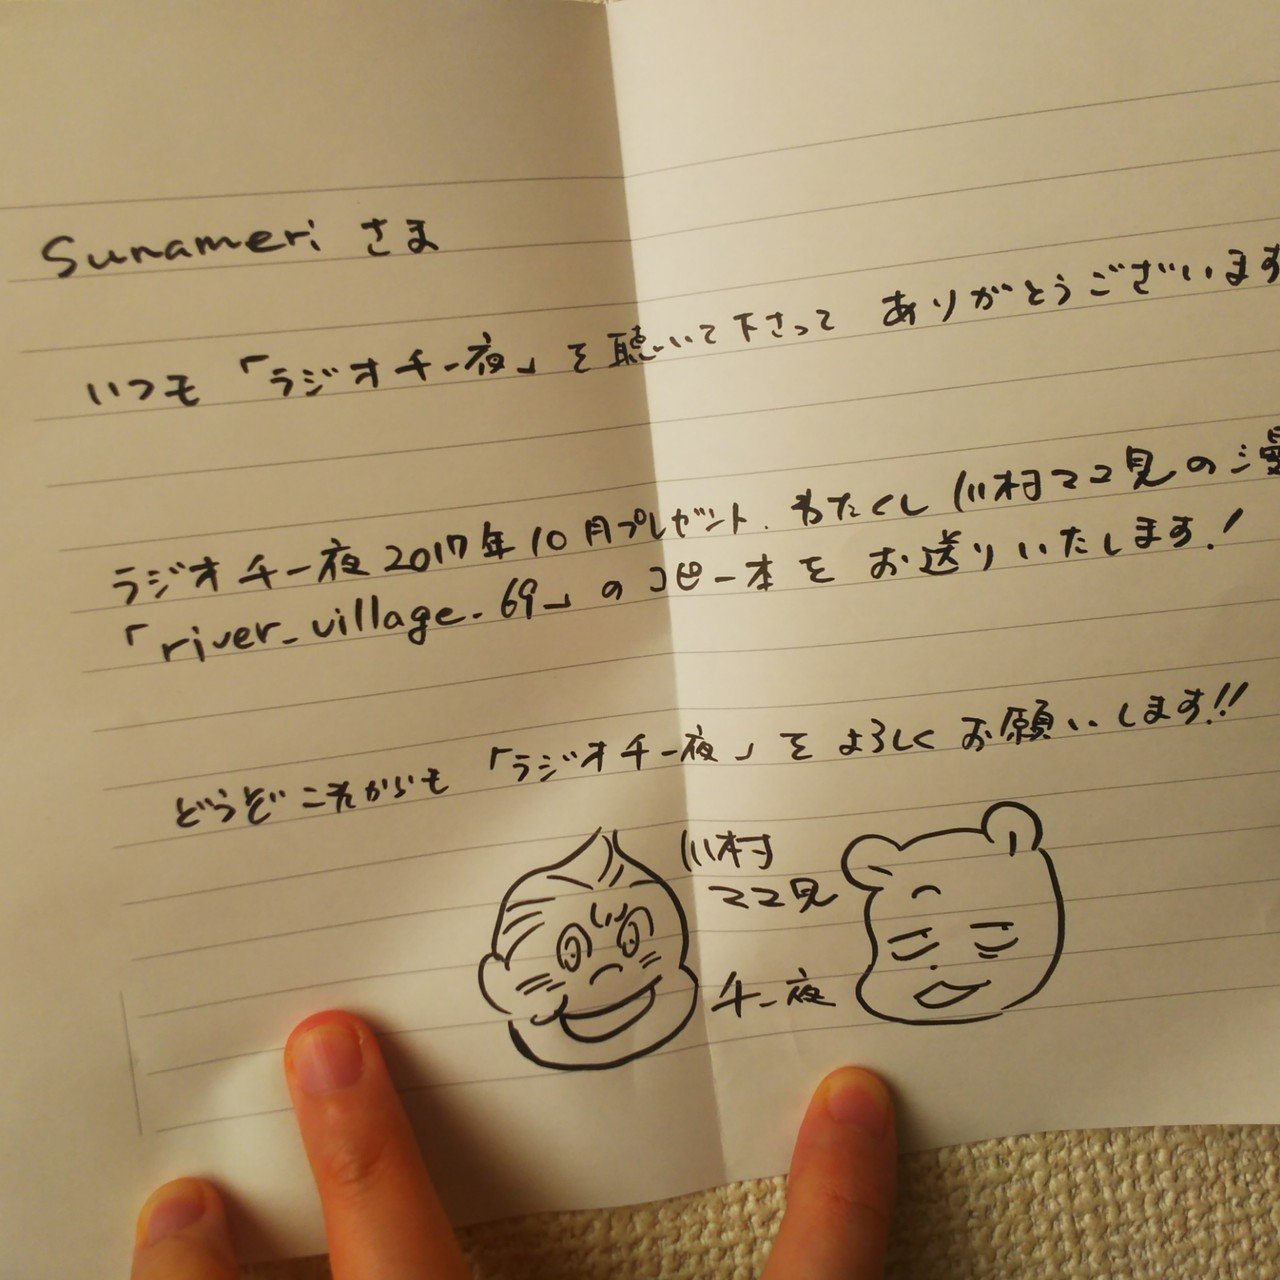 Sunameri さま
いつも「ラジオ千一夜」を聴いて下さって ありがとうございます
ラジオ千一夜2017年10月プレゼント、わたくし川村ママ見の漫
「river_village_69」のコピー本を お送りいたします!
どうぞこれからも 「ラジオ千一夜」を よろしく お願いします!!
川村
ママ見
千一夜